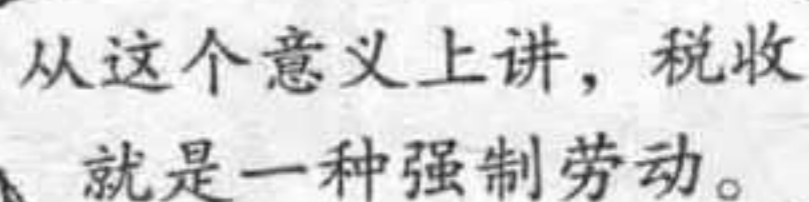 从这个意义上讲，税收
就是一种强制劳动。